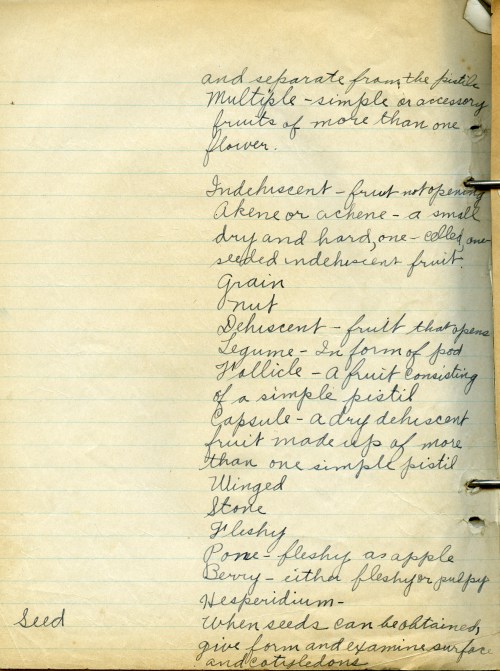 and separate from the pistils
Multiple - simple or accessory
fruits of more than one
flower.
Indehiscent - fruit not opening
Akene or achene - a small
dry and hard, one - celled, one-
seeded indehiscent fruit.
Grain
nut
Dehiscent - fruit that opens
Legume - In form of pod
Follicle - a fruit consisting
of a simple pistil
Capsule - a dry dehiscent
fruit made up of more
than one simple pistil
Winged
Stone
Fleshy
Pome - fleshy as apple
Berry - either fleshy or pulpy
Hesperidium -
Seed When seeds can be obtained,
give form and examine surface
and cotyledons